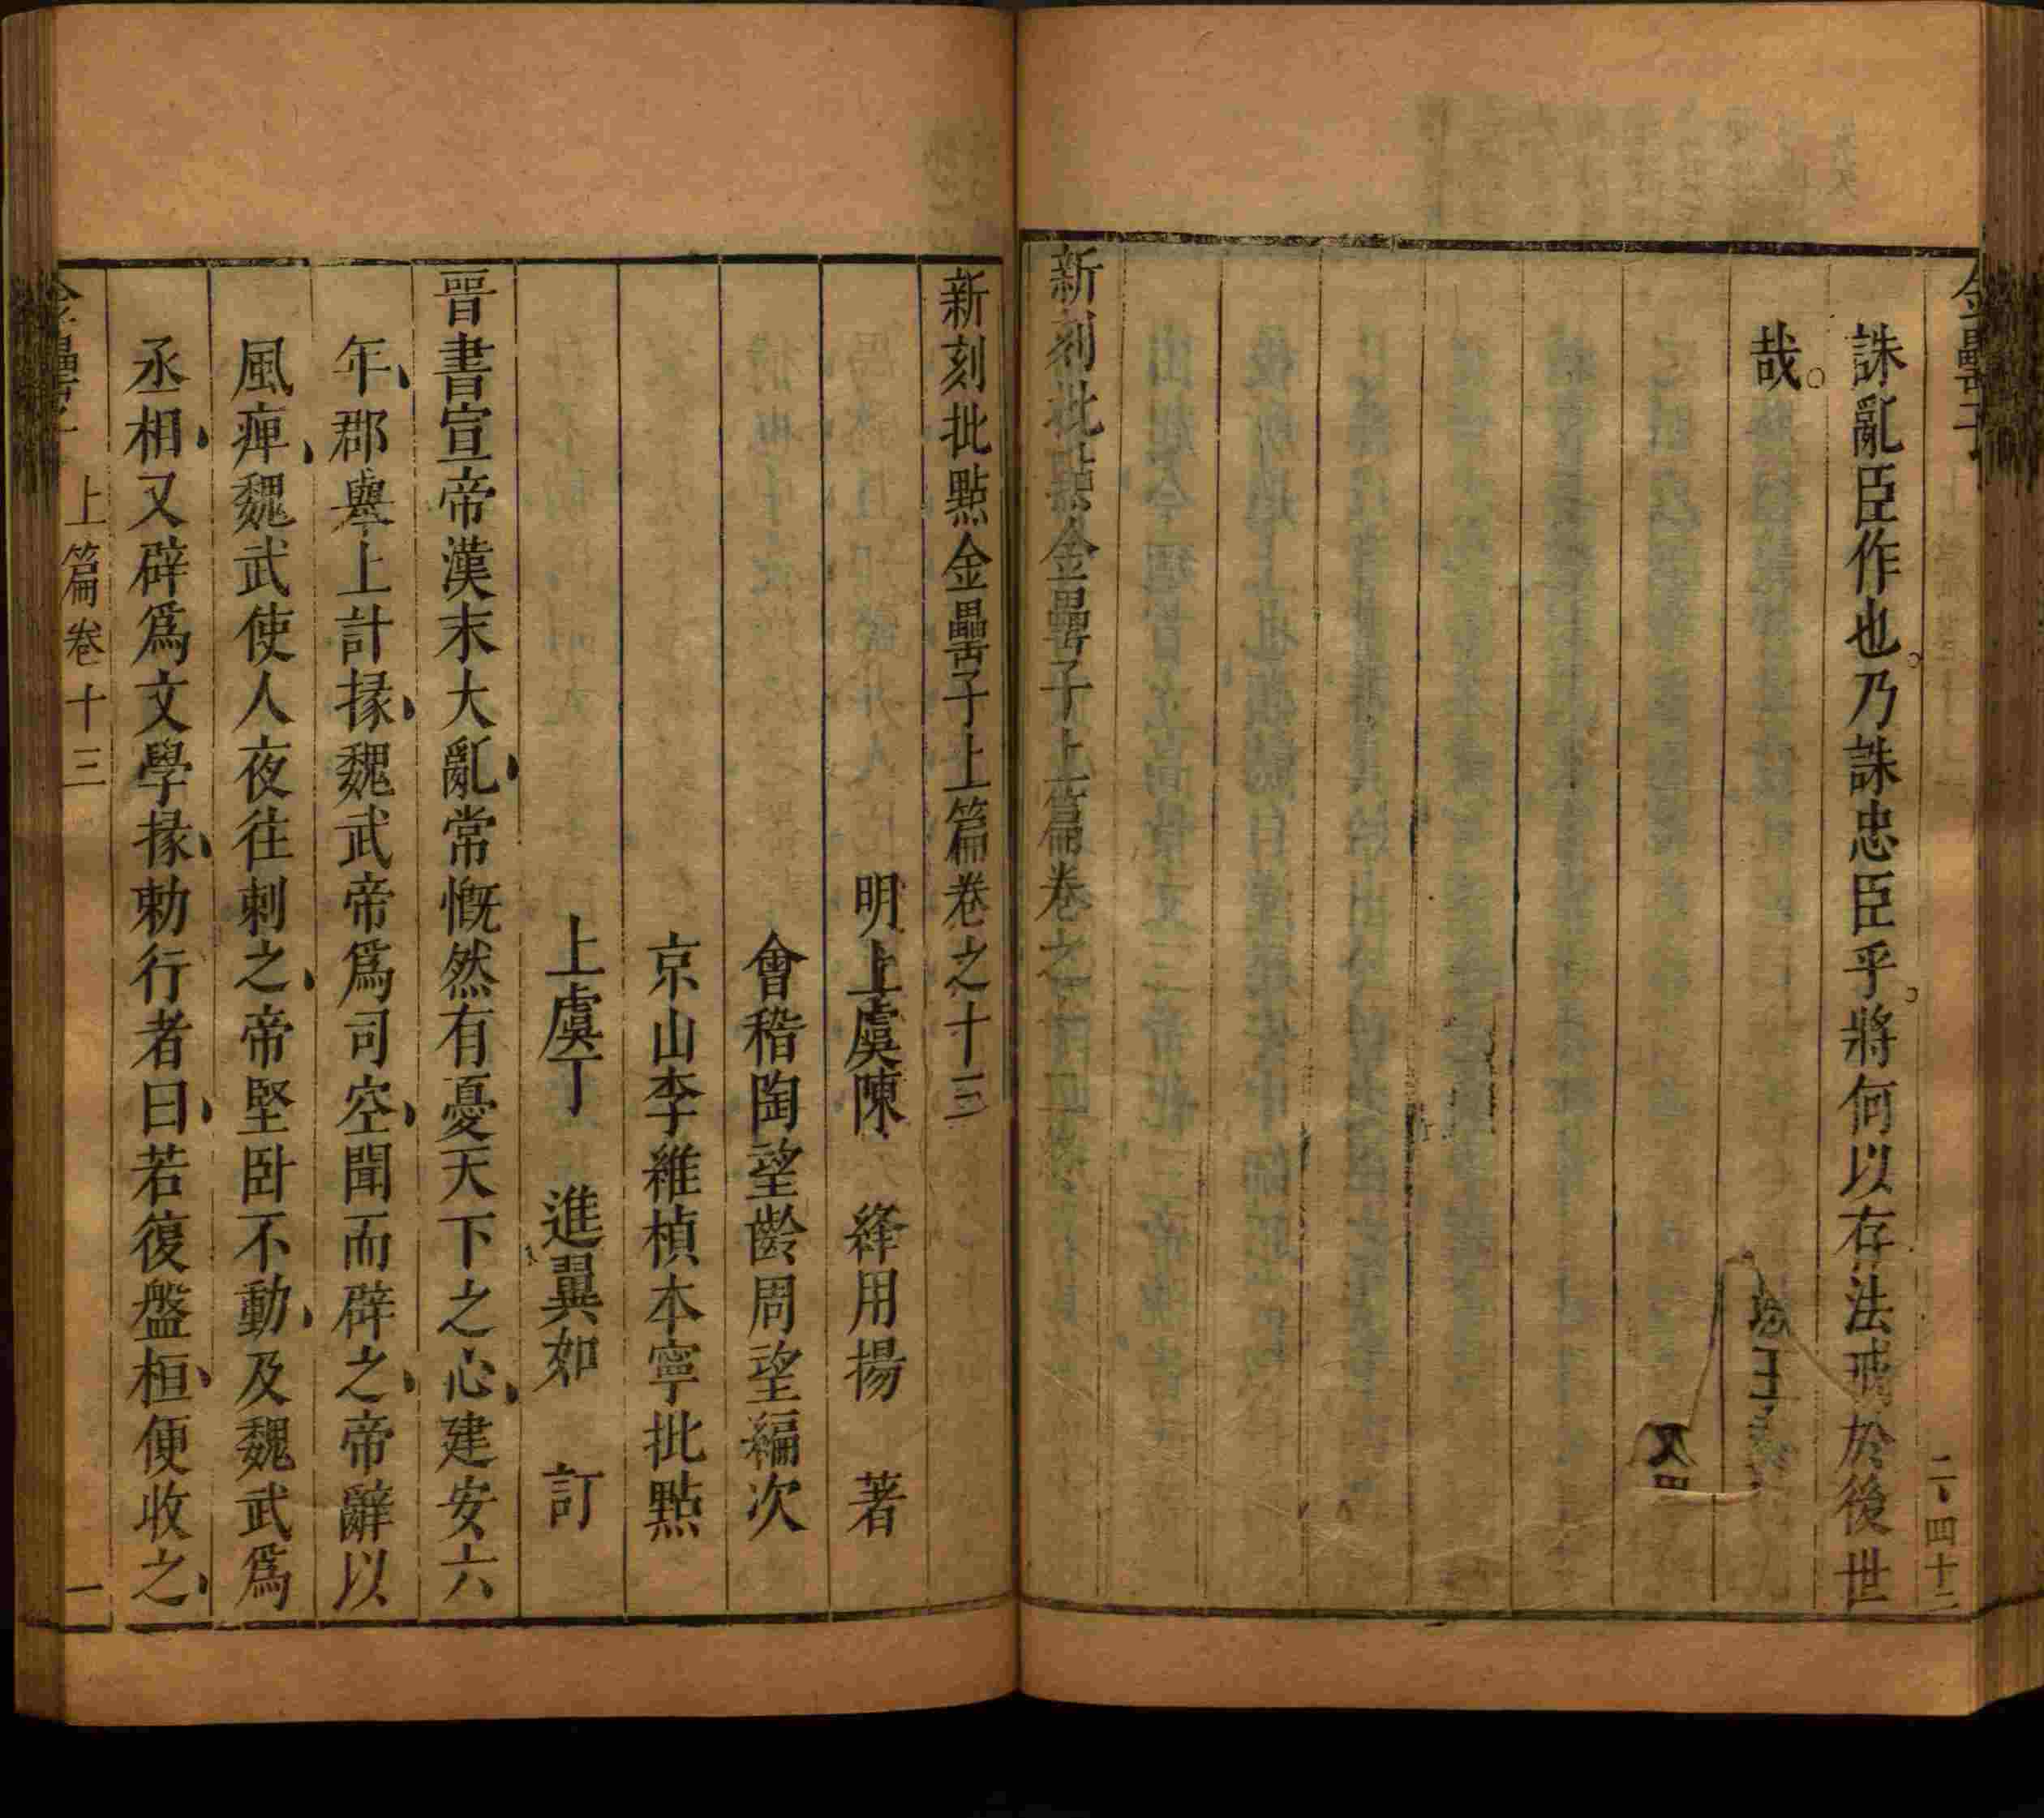 金罍子
誅亂臣作也乃誅忠臣乎將何以存法戒於後世
哉
二
四十二
新刻批點金罍子上篇卷之
新刻批點金罍子上篇卷之十三
明上虞陳 絳用揚 著
會稽陶望齡周望編次
京山李維楨本寧批點
上虞丁 進翼如 訂
晉書宣帝漢末大亂常慨然有憂天下之心建安六
年郡舉上計掾魏武帝爲司空聞而辟之帝辭以
風痺魏武使人夜往刺之帝堅臥不動及魏武爲
丞相又辟爲文學掾勅行者曰若復盤桓便收之
金罍子
上篇卷十三
一